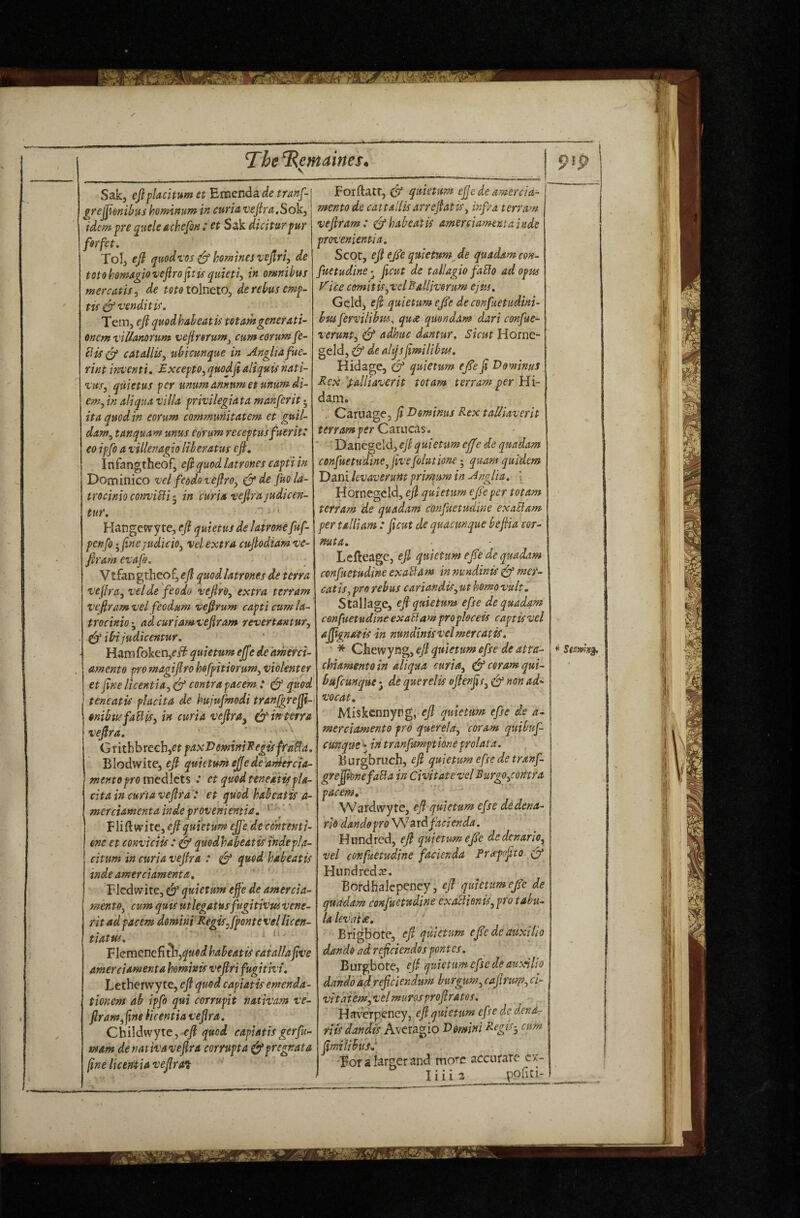 The Remaines.
919
Sak, est placitum et Emenda de transgres-
gressionibus hominum in curia vestra. Sok,
idem pre quele acheson : et Sak dicitur pur
forfet.
Tol, est quod vos & homines vestri, de
toto homagio vestro sitis quieti, in omnibus
mercatis, de toto tolneto, de rebus emp-
tis & venditis.
Tem, est quod habeatis totam generati-
onem villanorum vestrorum, cum eorum se-
ctis & catallis, ubicunque in Anglia fue-
rint inventi. Excepto, quod si aliquis nati-
vus, quietus per unum annum et unum di-
em, in aliqua villa privilegiata manserit ;
ita quod in eorum communitatem et guil-
dam, tanquam unus eorum receptus fuerit:
eo ipso a villenagio liberatus est.
Infangtheof, est quod latrones capti in
Dominico vel feodo vestro, & de suo la-
trocinio convicti ; in curia vestra judicen-
tur.
Hangewyte, est quietus de latrone sus-
penso ; sine judicio, vel extra custodiam ve-
stram evaso.
Vtfangtheof, est quod latrones de terra
vestra, vel de feodo vestro, extra terram
vestram vel feodum vestrum capti cum la-
trocinio ; ad curiam vestram revertantur,
& ibi judicentur.
Hamsoken, est quietum esse de amerci-
amento pro magistro hospitiorum, violenter
et sine licentia, & contra pacem : & quod
teneatis placita de hujusmodi transgressi-
onibus factis, in curia vestra, & in terra
vestra.
Grithbrech, et pax Domini Regis fracta.
Blodwite, est quietum esse de amercia-
mento pro medlets : et quod teneatis pla-
cita in curia vestra : et quod habeatis a-
merciamenta inde provenientia.
Flistwite, est quietum esse de contenti-
one et conviciis : & quod habeatis inde pla-
citum in curia vestra : & quod habeatis
inde amerciamenta.
Fledwite, & quietum esse de amercia-
mento, cum quis utlegatus fugitivus vene-
rit ad pacem domini Regis, sponte vel licen-
tiatus.
Flemenefith, quod habeatis catalla sive
amerciamenta hominis vestri fugitivi.
Letherwyte, est quod capiatis emenda-
tionem ab ipso qui corrupit nativam ve-
stram, sine licentia vestra.
Childwyte, est quod capiatis gersu-
mam de nativa vestra corrupta & pregnata
sine licentia vestra.
Forstatt, & quietum esse de amercia-
mento de cattallis arrestatis, infra terram
vestram : & habeatis amerciamenta inde
provenientia.
Scot, est esse quietum de quadam con-
suetudine ; sicut de tallagio facto ad opus
Vice comitis, vel Ballivorum ejus.
Geld, est quietum esse de consuetudini-
bus servilibus, quæ quondam dari consue-
verunt, & adhuc dantur. Sicut Horne-
geld, & de alijs similibus.
Hidage, & quietum esse si Dominus
Rex talliaverit totam terram per Hi-
dam.
Caruage, si Dominus Rex talliaverit
terram per Carucas.
Danegeld, est quietum esse de quadam
consuetudine, sive solutione ; quam quidem
Dani levaverunt primum in Anglia.
Hornegeld, est quietum esse per totam
terram de quadam consuetudine exactam
per talliam : sicut de quacunque bestia cor-
nuta.
Lesteage, est quietum esse de quadam
consuetudine exactam in nundinis & mer-
catis, pro rebus cariandis, ut homo vult.
Stallage, est quietum esse de quadam
consuetudine exactam pro ploceis captis vel
assignatis in nundinis vel mercatis.
* Chewyng, est quietum esse de atta-
chiamento in aliqua curia, & coram qui-
buscunque ; de querelis ostensis, & non ad-
vocat.
* Stewing.
Miskennyng, est quietum esse de a-
merciamento pro querela, coram quibus-
cunque ; in transumptione prolata.
Burgbruch, est quietum esse de trans-
gressione facta in Civitate vel Burgo, contra
pacem.
Wardwyte, est quietum esse de dena-
rio dando pro Ward facienda.
Hundred, est quietum esse de denario,
vel consuetudine facienda Præposito &
Hundredæ.
Bordhalepeney, est quietum esse de
quadam consuetudine exactionis, pro tabu-
la levatæ.
Brigbote, est quietum esse de auxilio
dando ad reficiendos pontes.
Burgbote, est quietum esse de auxilio
dando ad reficiendum burgum, castrum, ci-
vitatem, vel muros prostratos.
Haverpeney, est quietum esse de dena-
riis dandis Averagio Domini Regis ; cum
similibus.
For a larger and more accurate ex-
Iiii 2 positi-